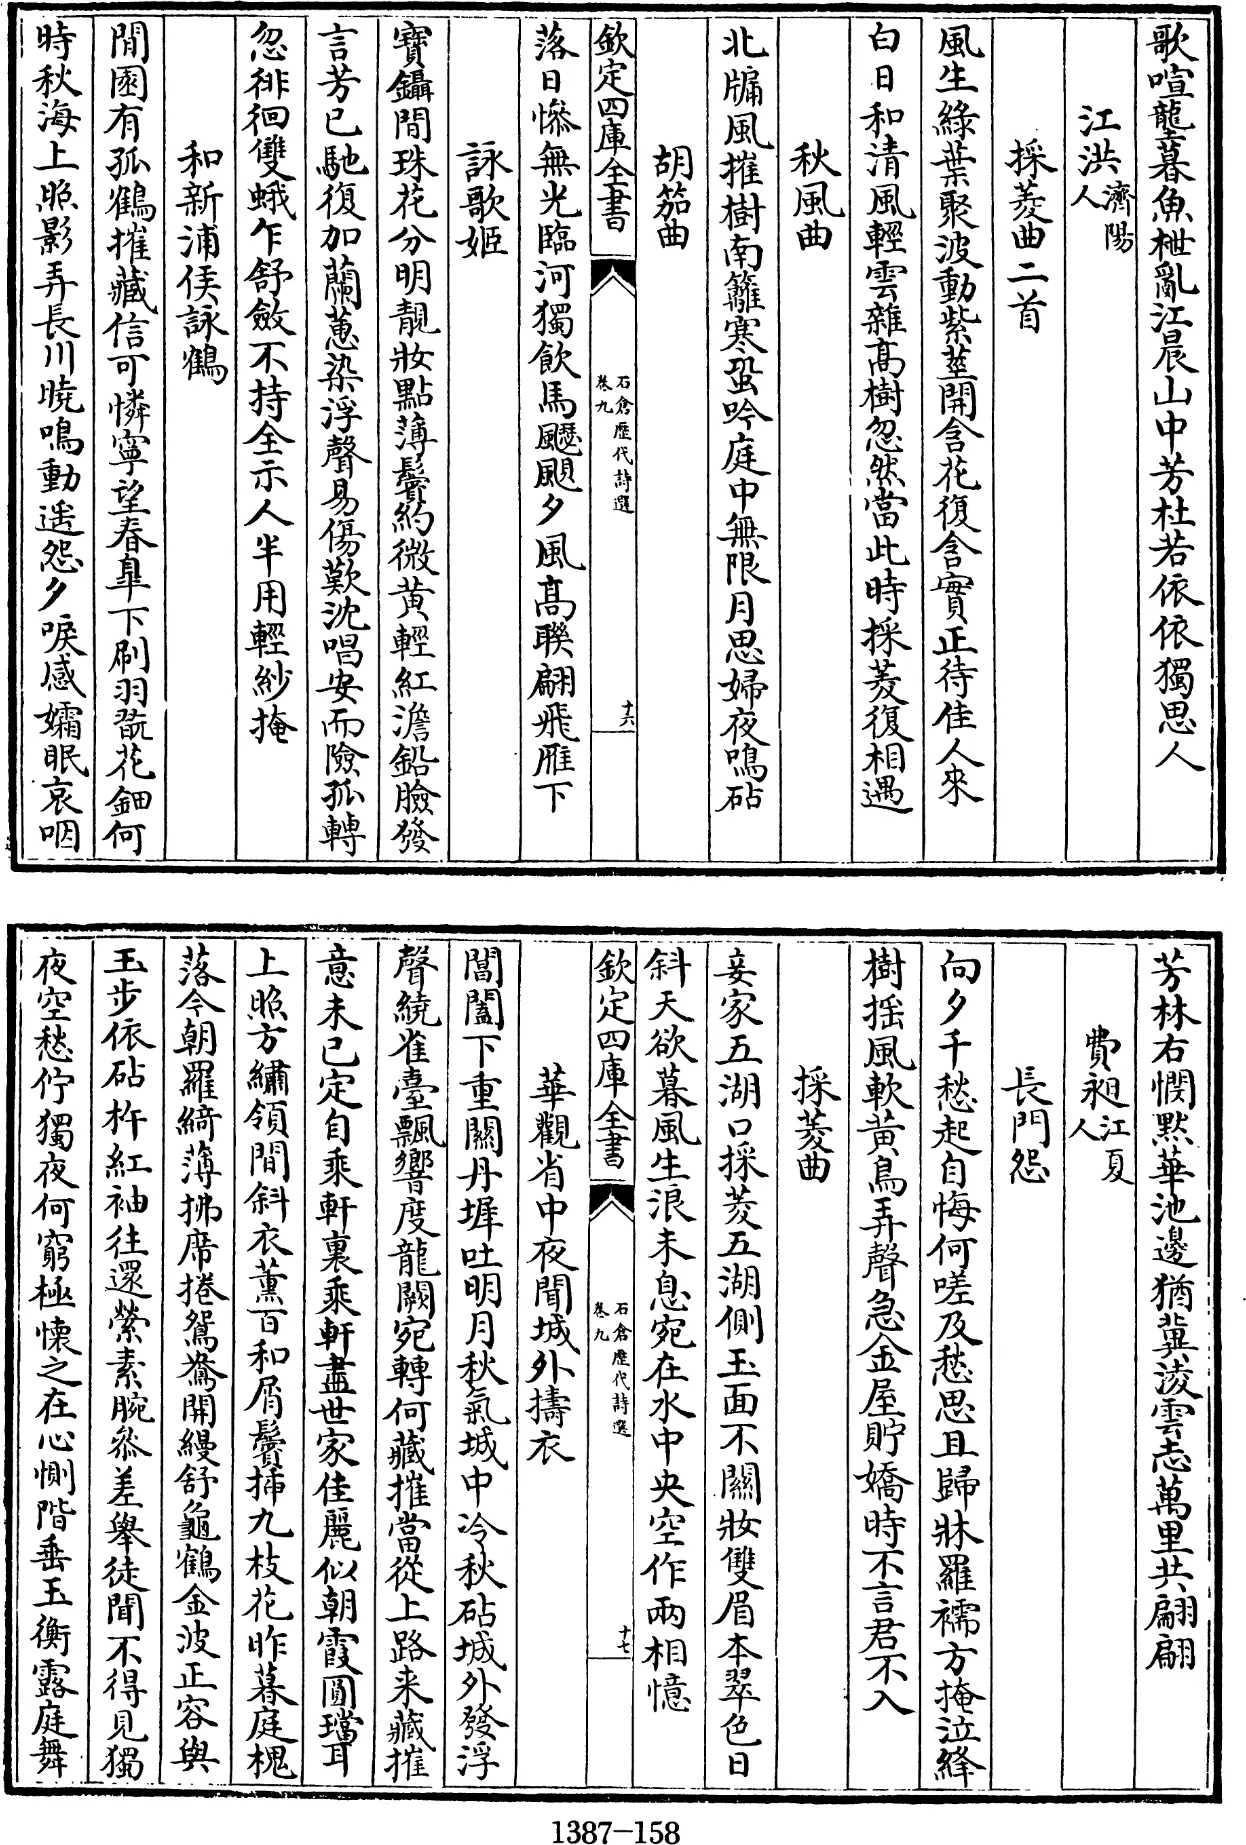 歌喧龍暮魚枻亂江晨山中芳杜若依依獨思人
江洪濟陽人
採菱曲二首
風生綠葉聚波動紫莖開含花復含實正待佳人來
白日和清風輕雲雜高樹忽然當此時採菱復相遇
秋風曲
北牖風摧樹南籬寒蛩吟庭中無限月思婦夜鳴砧
胡笳曲
欽定四庫全書
石倉歷代詩選
卷九
十六
落日慘無光臨河獨飲馬颼飀夕風高聯翩飛雁下
詠歌姬
寶鑷間珠花分明靚妝點薄鬢約微黃輕紅澹鉛臉發
言芳已馳復加蘭蕙染浮聲易傷歎沈唱安而險孤轉
忽徘徊雙蛾乍舒斂不持全示人半用輕紗掩
和新浦侯詠鶴
閒園有孤鶴摧藏信可憐寧望春皐下刷羽翫花鈿何
時秋海上照影弄長川曉鳴動遥怨夕唳感孀眠哀咽
芳林右憫黙華池邊猶冀淩雲志萬里共翩翩
費昶江夏人
長門怨
向夕千愁起自悔何嗟及愁思且歸牀羅襦方掩泣絳
樹搖風軟黃鳥弄聲急金屋貯嬌時不言君不入
採菱曲
妾家五湖口採菱五湖側玉面不關妝雙眉本翠色日
斜天欲暮風生浪未息宛在水中央空作兩相憶
欽定四庫全書
石倉歷代詩選
卷九
十七
華觀省中夜聞城外擣衣
閶闔下重關丹墀吐明月秋氣城中冷秋砧城外發浮
聲繞雀臺飄響度龍闕宛轉何藏摧當從上路来藏摧
意未已定自乘軒裏乘軒盡世家佳麗似朝霞圓璫耳
上照方繡領間斜衣薰百和屑鬢插九枝花昨暮庭槐
落今朝羅綺薄拂席捲鴛鴦開縵舒龜鶴金波正容與
玉步依砧杵紅袖往還縈素腕叅差舉徒聞不得見獨
夜空愁佇獨夜何窮極懷之在心惻階垂玉衡露庭舞
1387-158